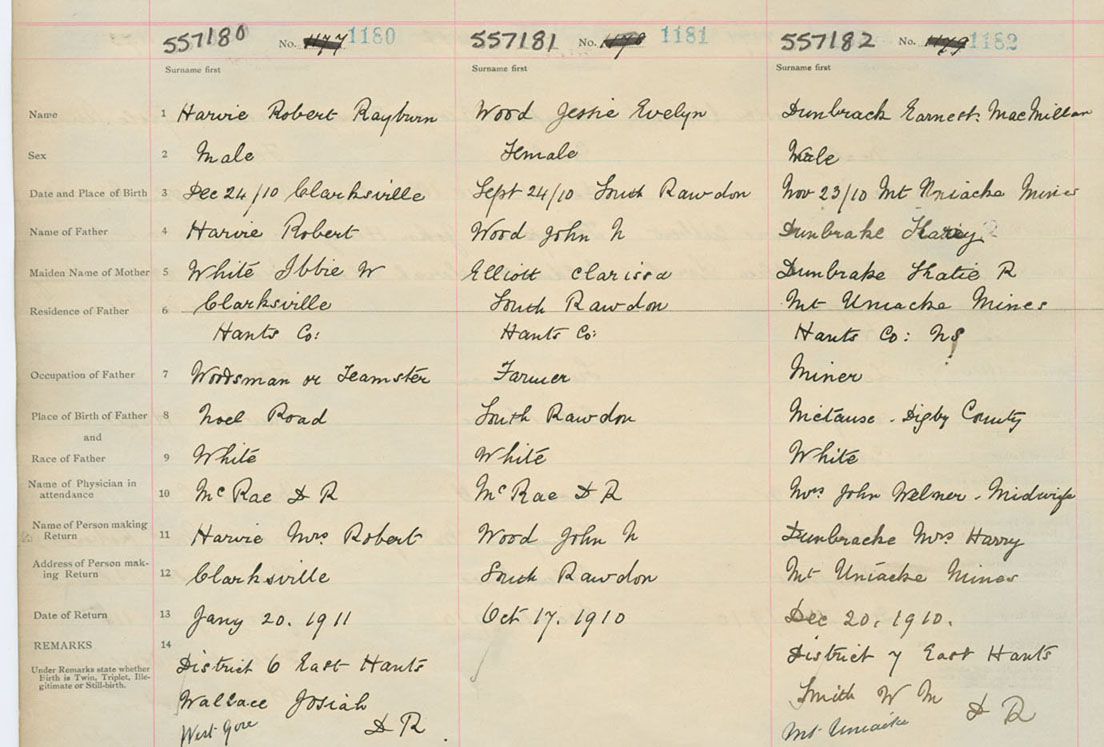 557180 No. 1177 1180 557181 No. 1178 1181 557182 No. 1179 1182
Surname first Surname first Surname first
Name 1 Harvie Robert Rayburn Wood Jessie Evelyn Dunbrack Earnest MacMillan
Sex 2 Male Female Male
Date and Place of Birth 3 Dec 24/10 Clarksville Sept 24/10 South Rawdon Nov 23/10 Mt Uniacke Mines
Name of Father 4 Harvie Robert Wood John N Dunbrake Harry
Maiden Name of Mother 5 White Ibbie W Elliott Clarissa Dunbrake Katie R
Residence of Father 6 Clarksville South Rawdon Mt Uniacke Mines
Hants Co: Hants Co: Hants Co: NS
Occupation of Father 7 Woodsman or Teamster Farmer Miner
Place of Birth of Father 8 Noel Road South Rawdon Metause - Digby County
and
Race of Father 9 White White White
Name of Physician in
attendance 10 McRae D R McRae D R Mrs John Welner - Midwife
Name of Person making
Return 11 Harvie Mrs Robert Wood John N Dunbracke Mrs Harry
Address of Person mak-
ing Return 12 Clarksville South Rawdon Mt Uniacke Mines
Date of Return 13 Jany 20. 1911 Oct 17. 1910 Dec 20, 1910.
REMARKS 14
Under Remarks state whether
Birth is Twin, Triplet, Ille-
gitimate or Still-birth.
District 6 East Hants District 7 East Hants
Wallace Josiah Smith W M
West Gore D R Mt Uniacke D R